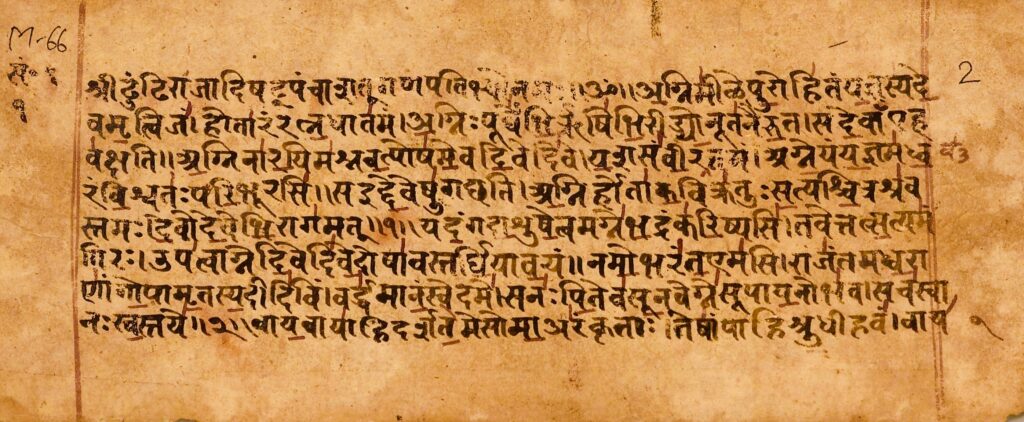 M-66
मं॰ १
१
2
श्री ढुंढिराजादिषट्पंचाशतूगणपतिभ्योनमः॥ॐ॥अग्निमीळेपुरोहितंयज्ञस्यदे
वमृत्विजं।होतारंरत्नधातमं।अग्निःपूर्वेभिर्ऋषिभिरीड्योनूतनैरुत।सदेवाँएह
वक्षति॥अग्निनारयिमश्नवत्पोषमेवदिवेदिवे।यशसंवीरवत्तमं।अग्नेयंयज्ञमध्व
रंविश्वतःपरिभूरसि॥सइद्देवेषुगछति।अग्निर्होताकविक्रतुःसत्यश्चित्रश्रव
स्तमः।देवोदेवेभिरागमत्॥१॥यदंगदाशुषेत्वमग्नेभद्रंकरिष्यसि।तवेत्तत्सत्यमं
गिरः।उपत्वाग्नेदिवेदिवेदोषावस्तर्धियावयं॥नमोभरंतएमसि।राजंतमध्वरा
णांगोपामृतस्यदीदिविं।वर्द्धमानंस्वेदमे।सनःपितेवसूनवेग्नेसूपायनोभव।सचस्वा
नःस्वस्तये॥२॥वायवायाहिदर्शतेमेसोमाअरंकृताः।तेषांपाहिश्रुधीहवं।वाय